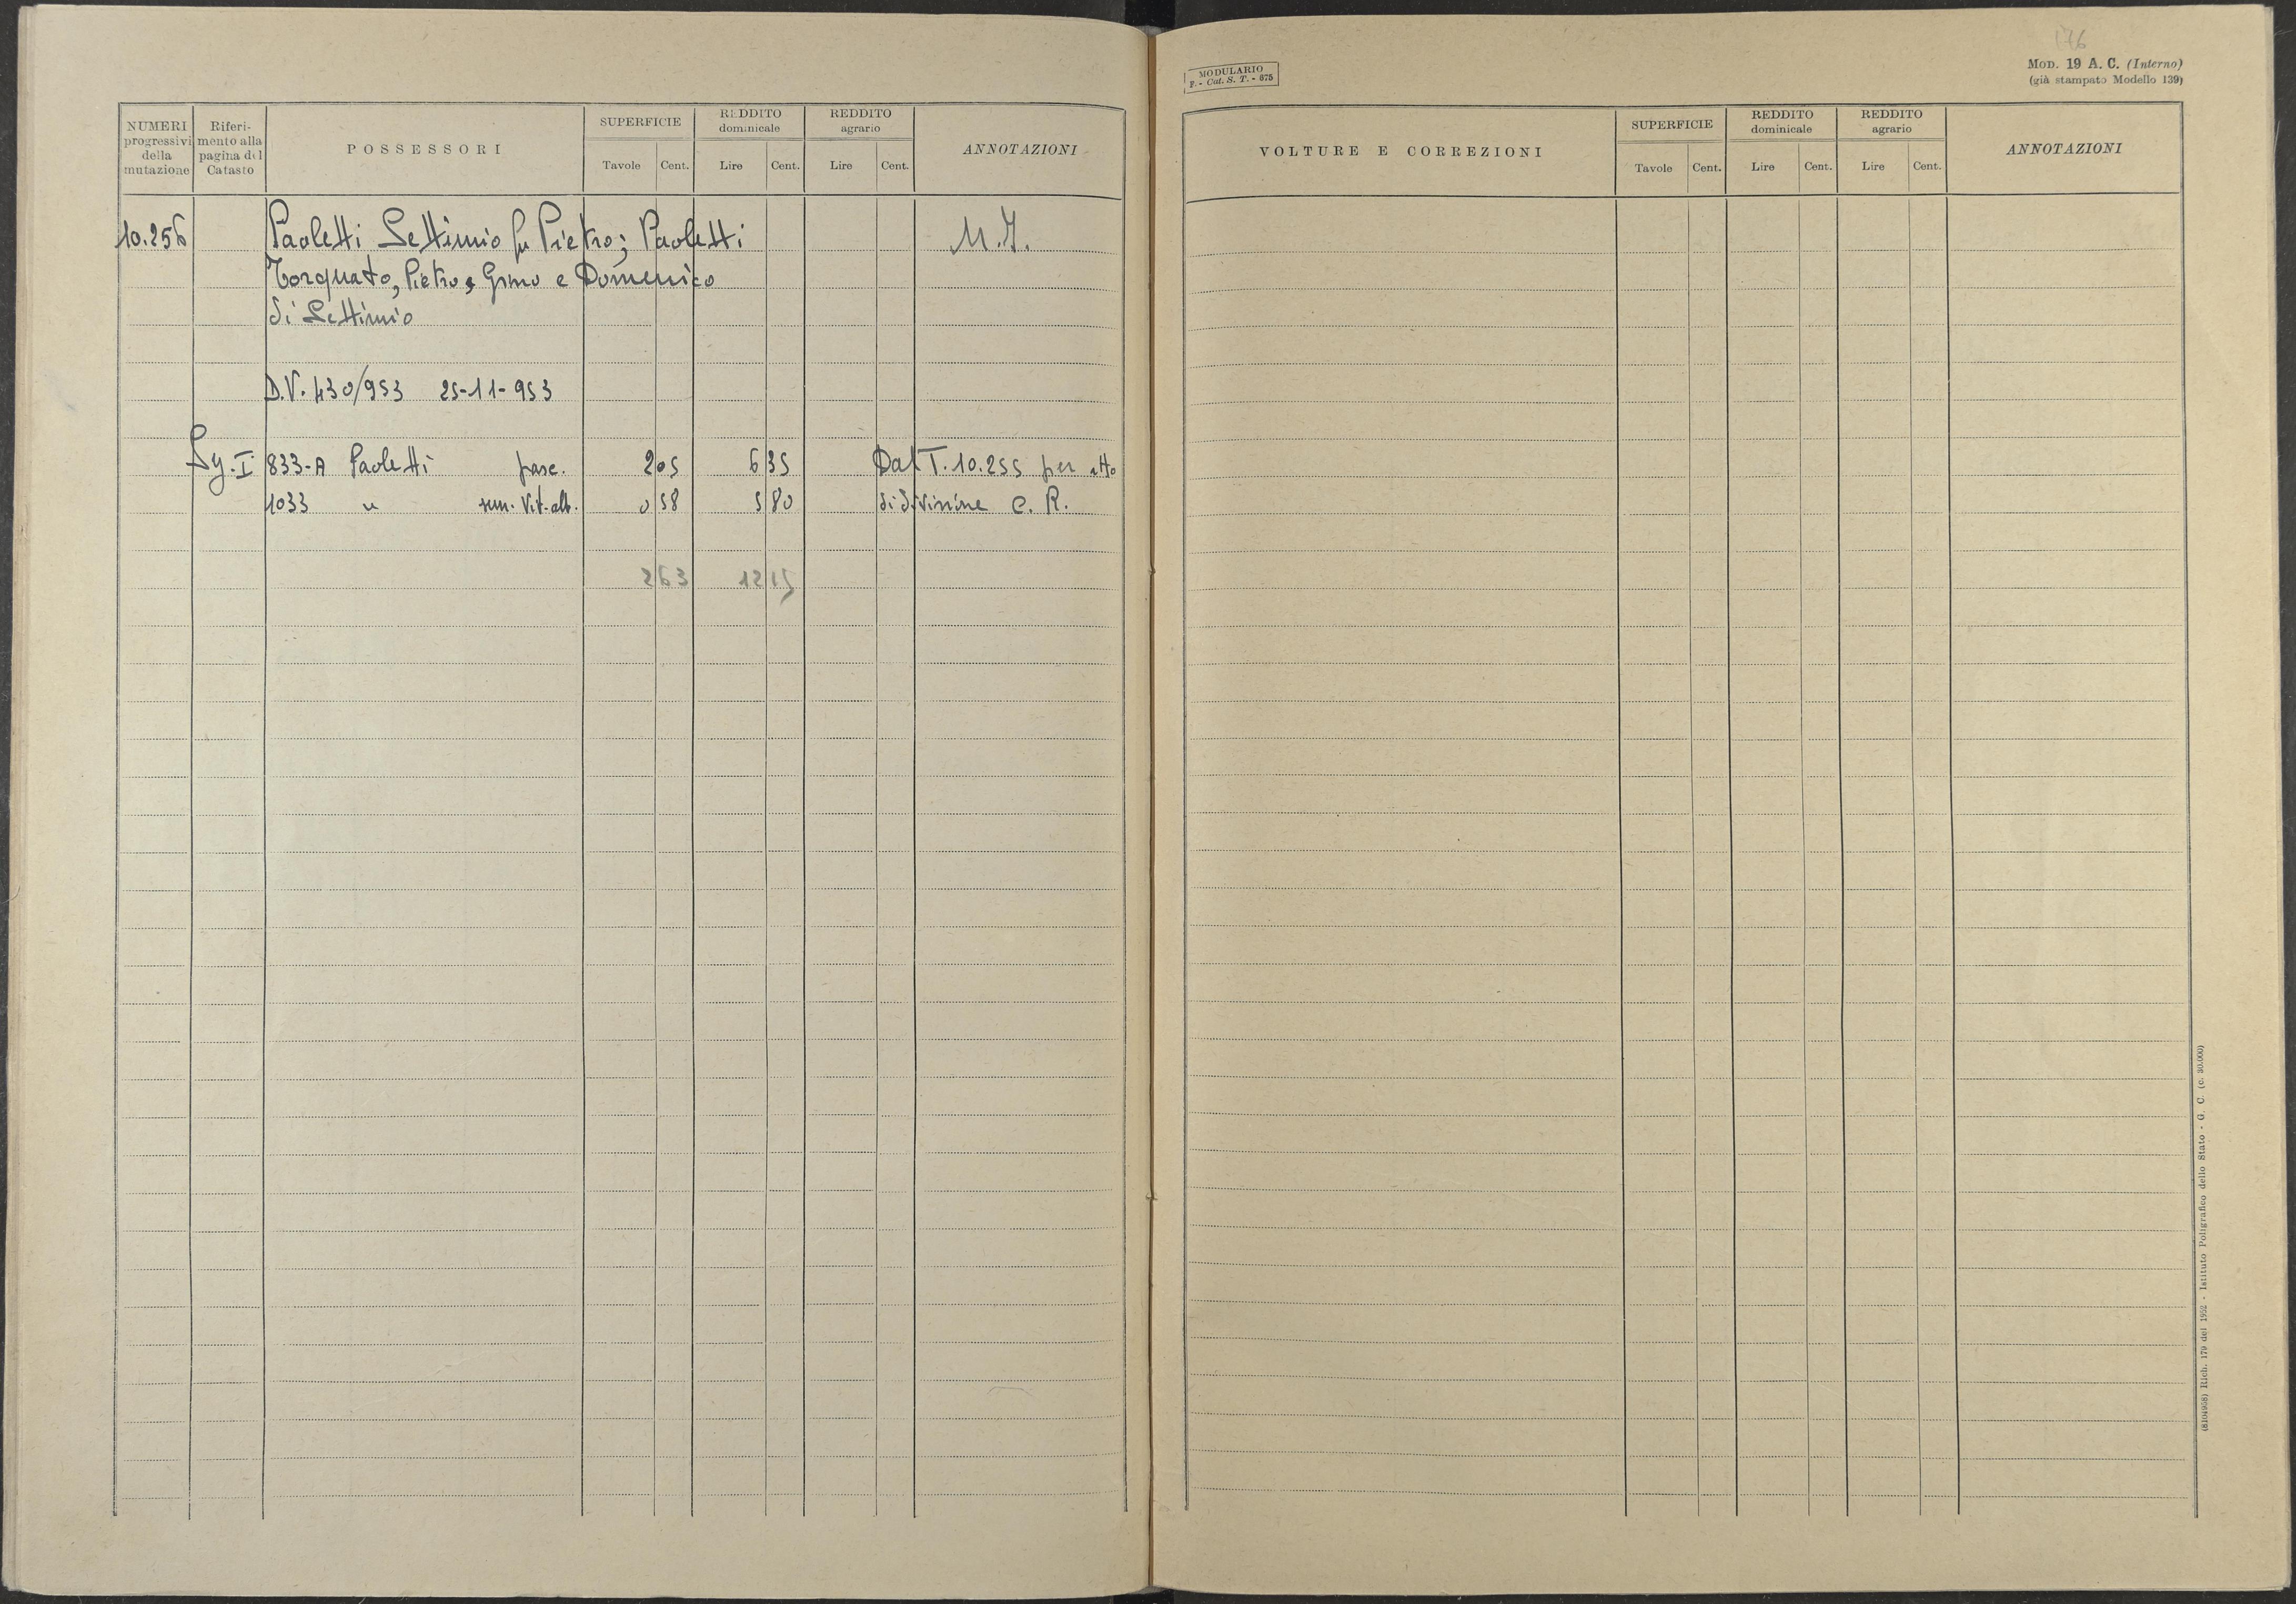 NUMERI progressivi della mutazione
Riferimento alla pagina del Catasto
POSSESSORI
SUPERFICIE
Tavole Cent.
REDDITO dominicale
Lire Cent.
REDDITO agrario
Lire Cent.
ANNOTAZIONI
10.256 Paoletti Settimio fu Pietro; Paoletti M.I.
Torquato, Pietro, Gino e Domenico
di Settimio
D.V. 430/953 25-11-953
Sez. I 833-A Paoletti pasc. 2 05 6 35 Dal T. 10.255 per atto
1033 " sem. Vit. alb. 0 58 5 80 di divisione C. R.
2 63 12 15
176
MODULARIO
F. - Cat. S. T. - 675
MOD. 19 A. C. (Interno)
(già stampato Modello 139)
VOLTURE E CORREZIONI
SUPERFICIE
Tavole Cent.
REDDITO dominicale
Lire Cent.
REDDITO agrario
Lire Cent.
ANNOTAZIONI
(8104958) Rich. 179 del 1952 - Istituto Poligrafico dello Stato - G. C. (c. 30.000)